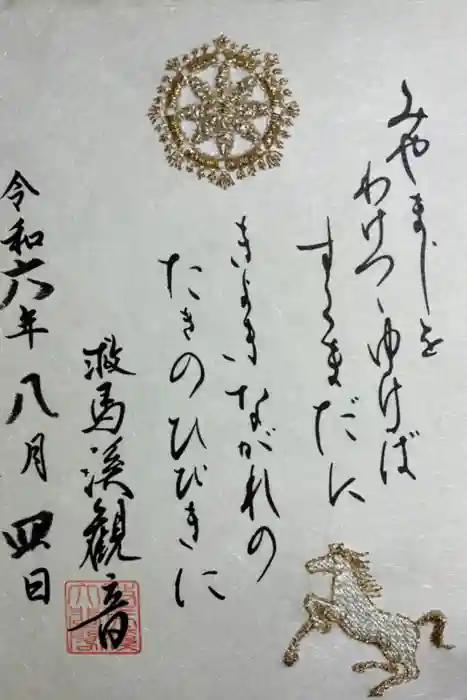 みやまじを
わけつゝゆけば
すくまだに
きよきながれの
たきのひびきに
救馬溪観音
令和六年八月四日